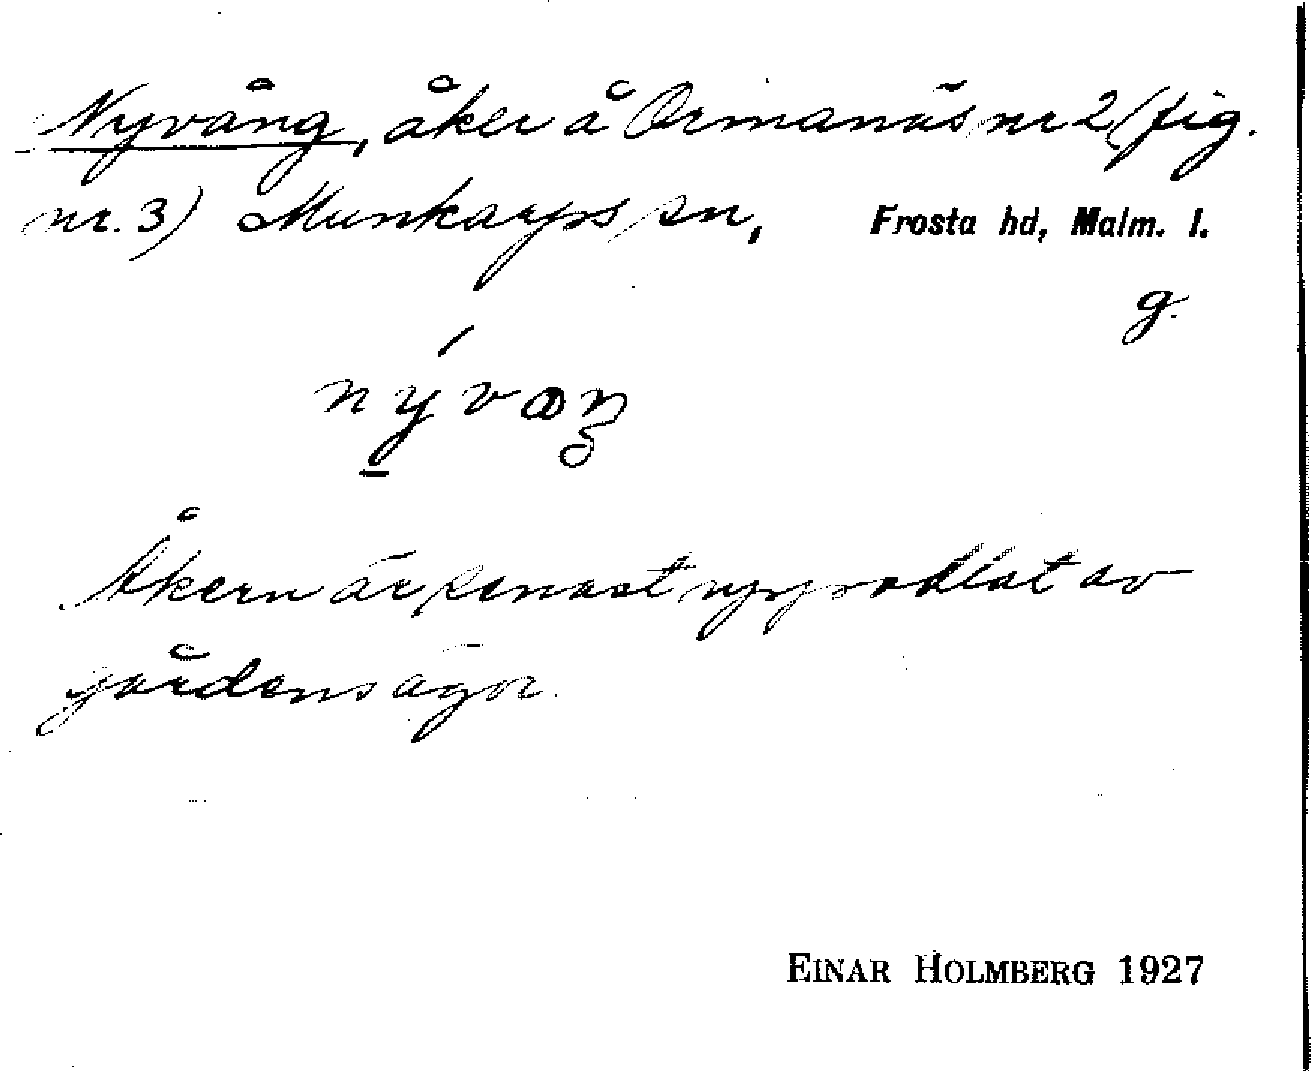 Nyvång, åker å Ormanäs nr 2 (fig.
nr. 3) Munkarps sn, Frosta hd, Malm. l.
g.
Åkern är senast uppodlat av
gårdens ägor.
EINAR HOLMBERG 1927